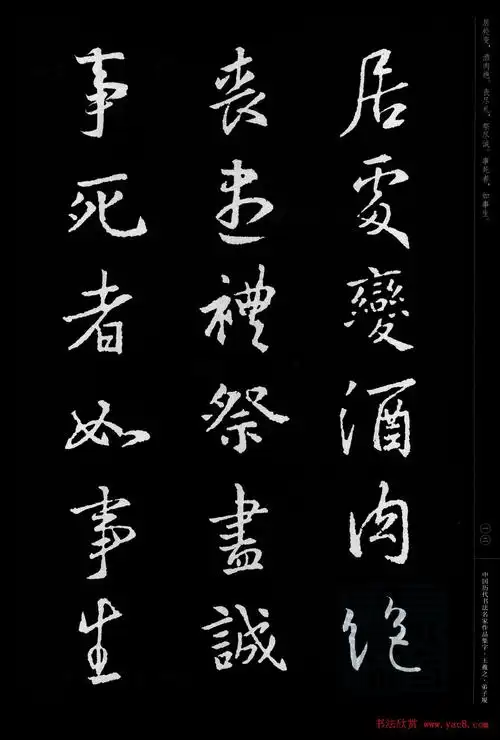 居處變酒肉絕
喪盡禮祭盡誠
事死者如事生
居处变，酒肉绝。丧尽礼，祭尽诚。事死者，如事生。
一二
中国历代书法名家作品集字·王羲之·弟子规
书法欣赏 www.yac8.com